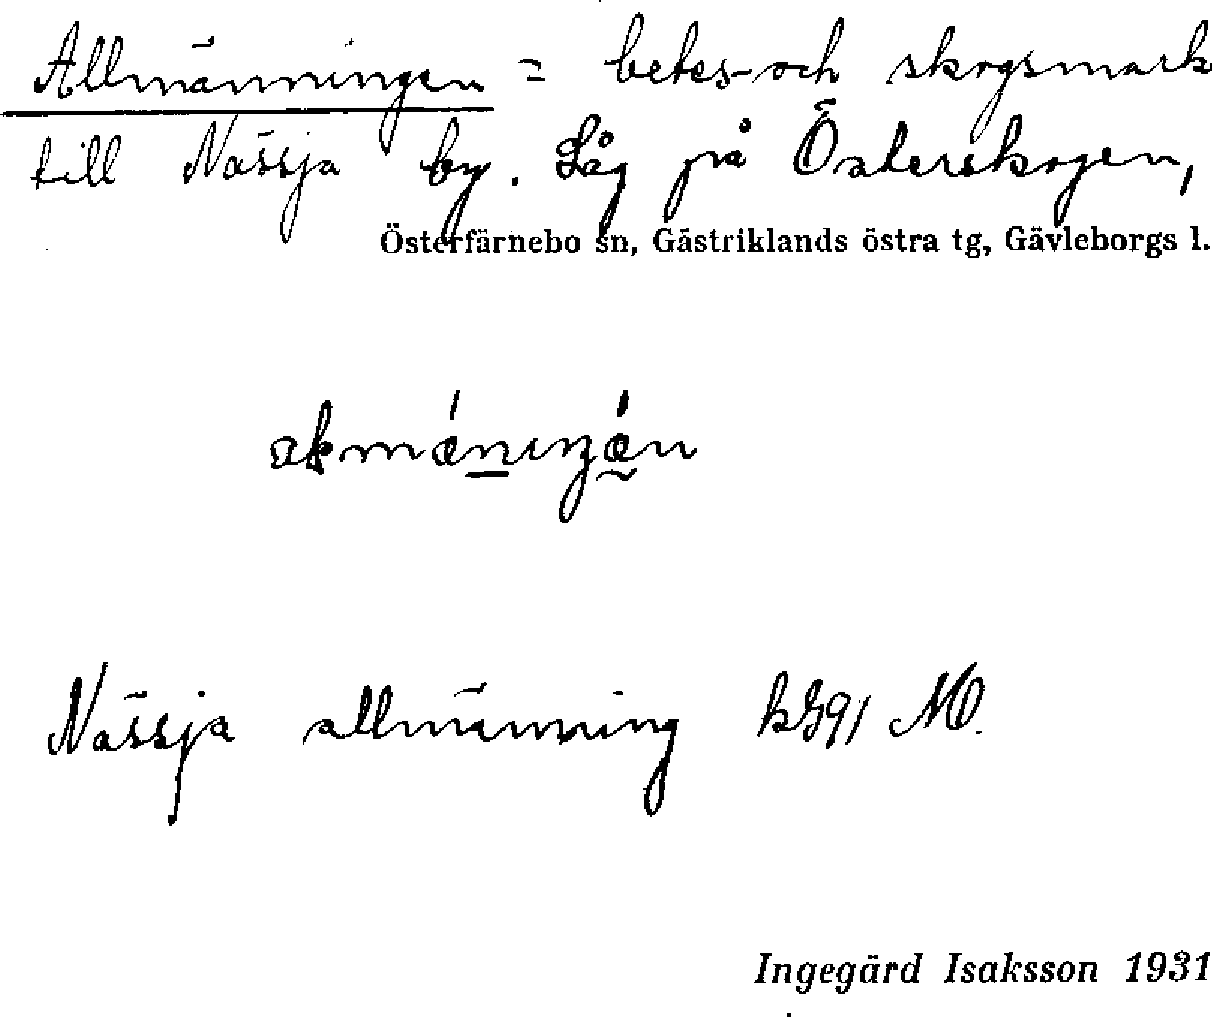 Allmänningen = betes- och skogsmark
till Nässja by. Låg på Österskogen,
Österfärnebo sn, Gästriklands östra tg, Gävleborgs l.
Nässja allmänning
Ingegärd Isaksson 1931